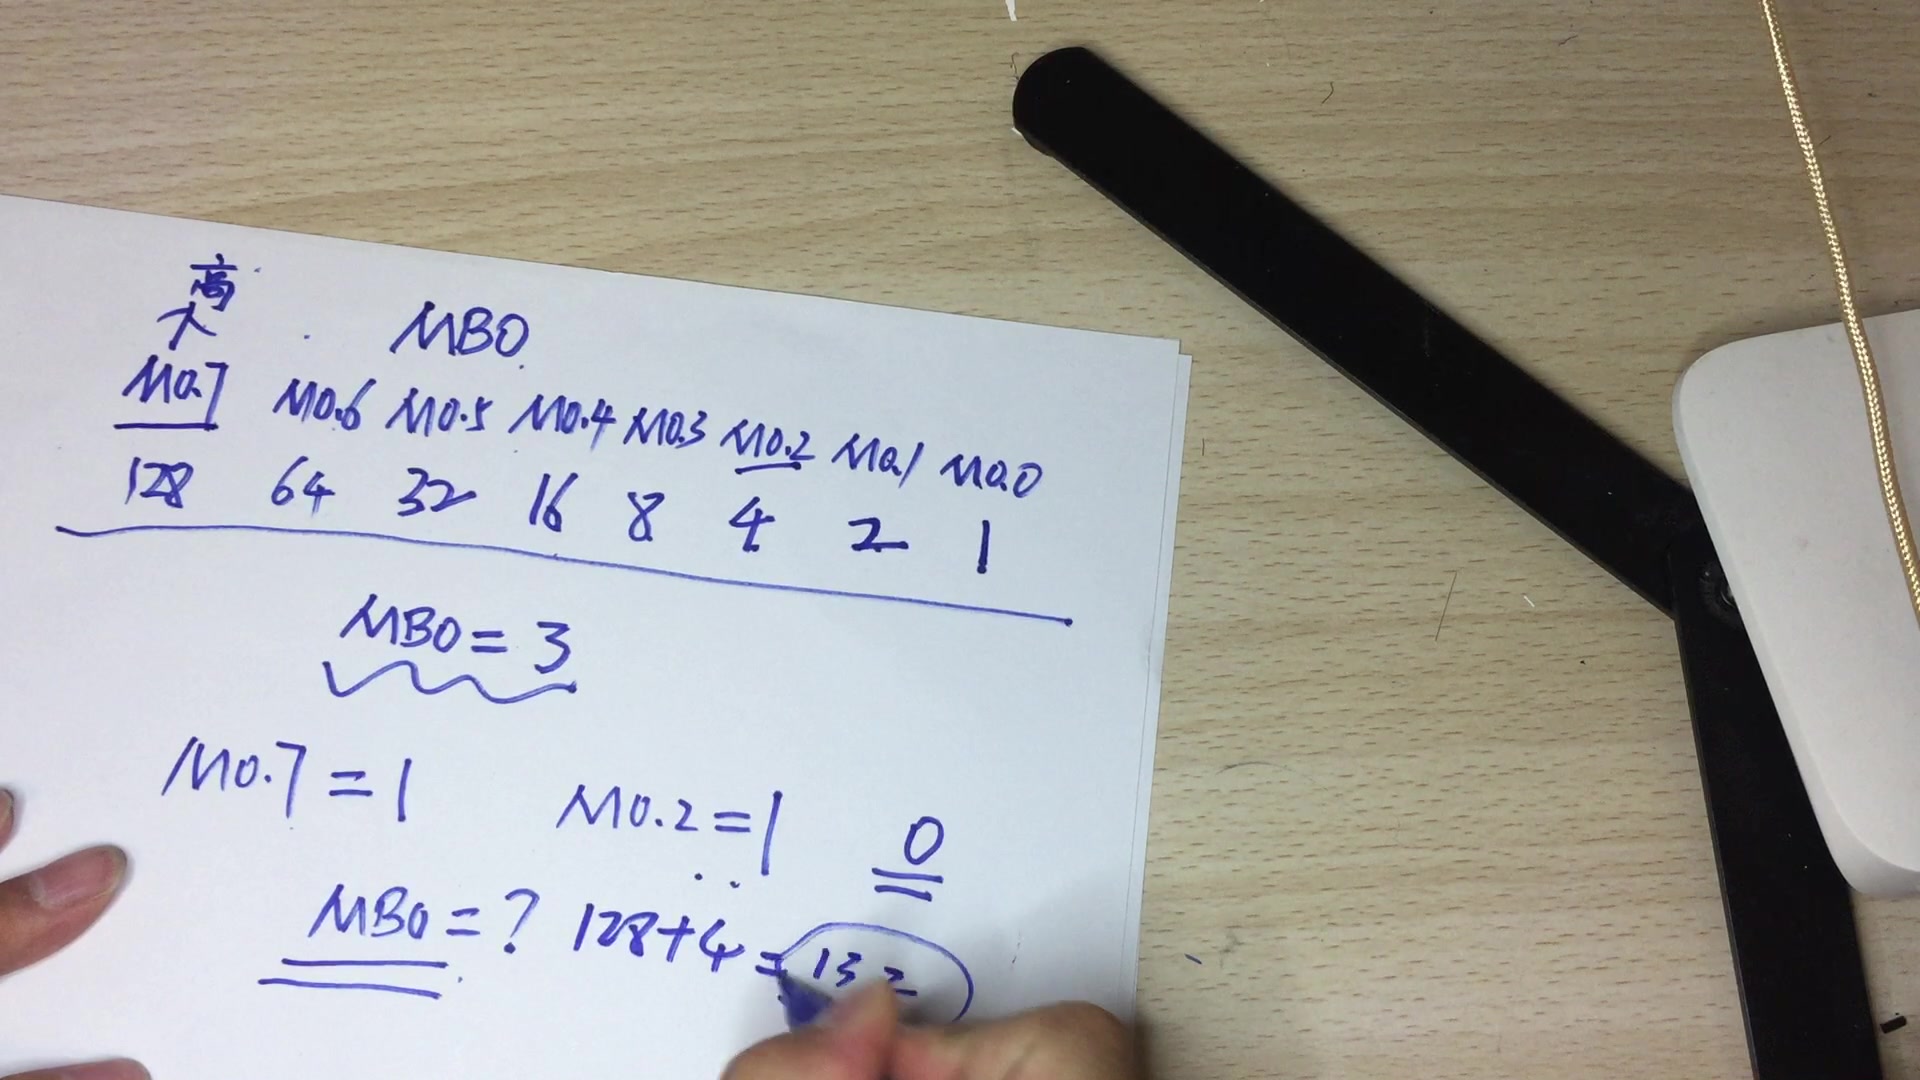 高
大 MB0
M0.7 M0.6 M0.5 M0.4 M0.3 M0.2 M0.1 M0.0
128 64 32 16 8 4 2 1
MB0 = 3
M0.7 = 1 M0.2 = 1 0
MB0 = ? 128+4 = 132